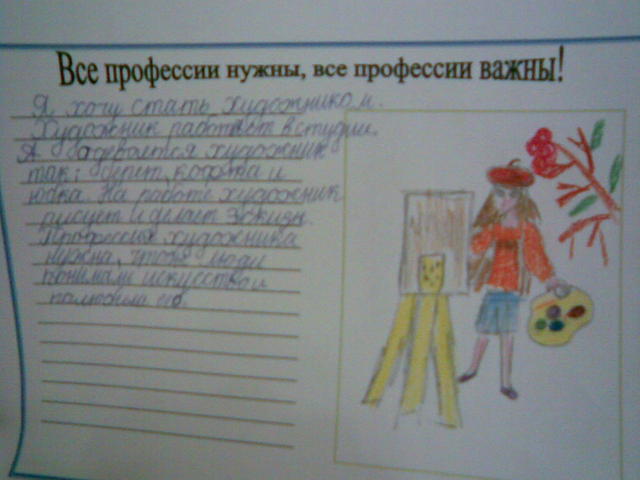 Все профессии нужны, все профессии важны!
Я хочу стать художником.
Художник работает в студии.
А одевается художник
так: берет, кофта и
юбка. На работе художник
рисует и делает эскизы.
Профессия художника
нужна, чтобы люди
понимали искусство и
полюбили его.